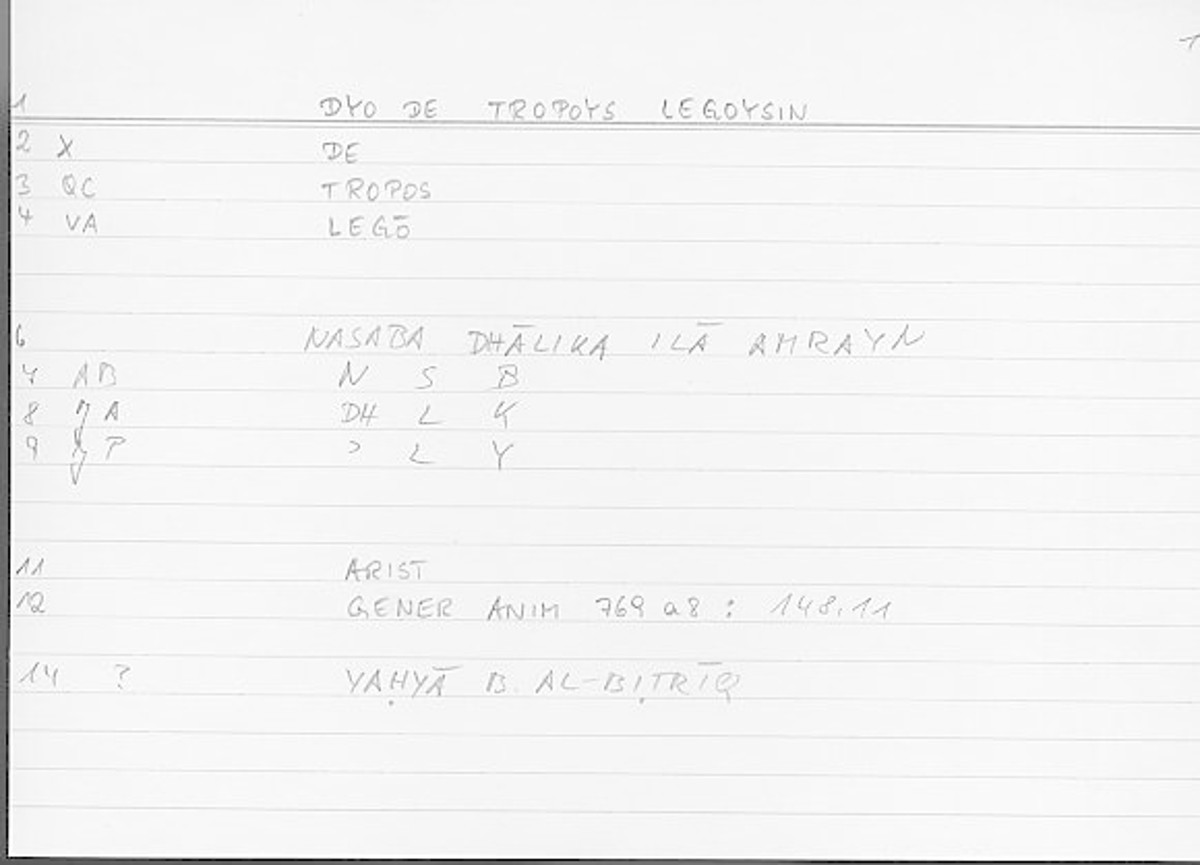 1
1 DYO DE TROPOYS LEGOYSIN
2 X DE
3 QC TROPOS
4 VA LEGŌ
6 NASABA DHĀLIKA ILĀ AMRAYN
7 AB N S B
8 A DH L K
9 P > L Y
11 ARIST
12 GENER ANIM 769 a8 : 148.11
14 ? YAḤYĀ B. AL-BIṬRĪQ